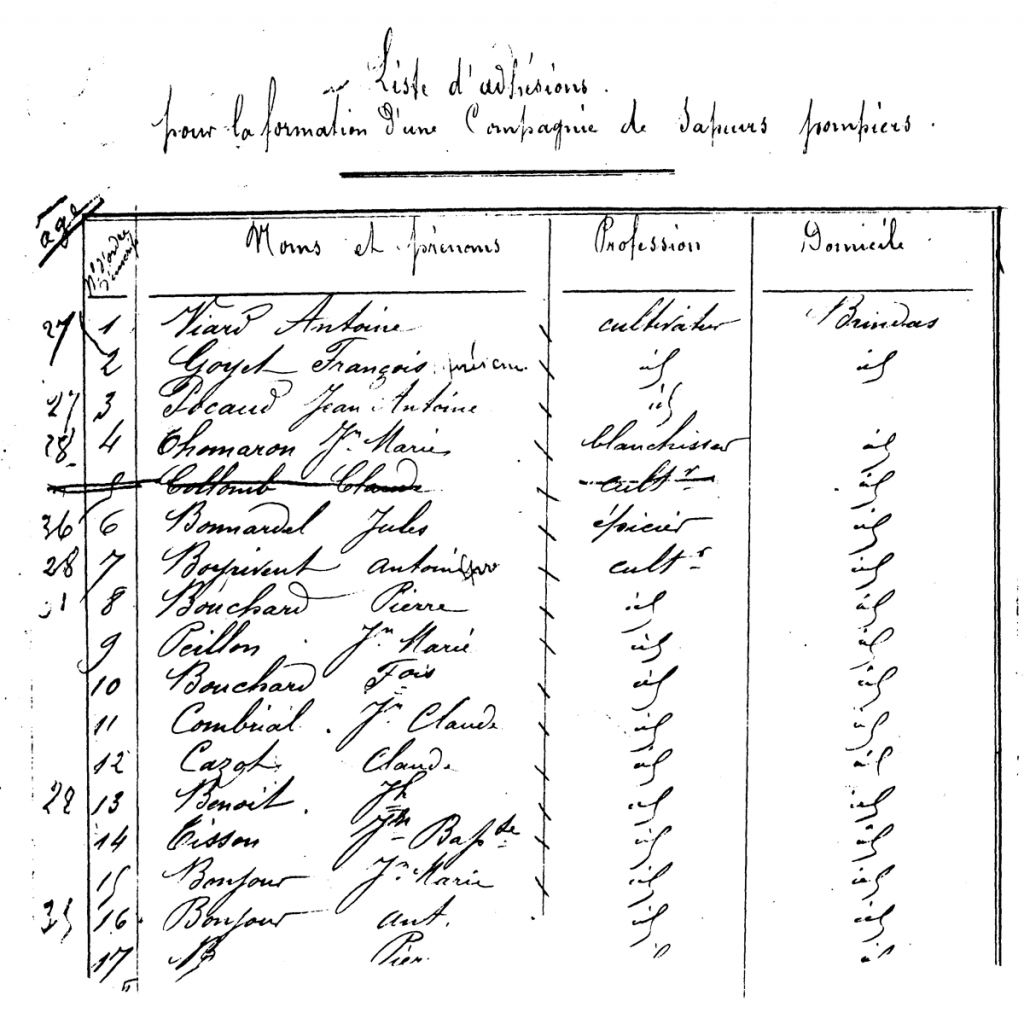 Liste d'adhésions.
pour la formation d'une Compagnie de Sapeurs pompiers.
âge
N° d'ordre Noms et prénoms Profession Domicile
27 1 Viard Antoine cultivateur Brindas
2 Goyet François id id
27 3 Pocaud Jean Antoine id
28 4 Thomaron Jn Marie blanchisseur id
5 Collomb Claude cultr id
36 6 Bonnardel Jules épicier id
28 7 Bonpivent antoine cultr id
31 8 Bouchard Pierre id id
9 Peillon Jn Marie id id
10 Bouchard Fois id id
11 Combrial. Jn Claude id id
12 Cazot Claude id id
28 13 Benoit. Jh id id
14 Tisson Jn Bapste id id
15 Bonjour Jn Marie id id
35 16 Bonjour ant. id id
17 B Pier id id